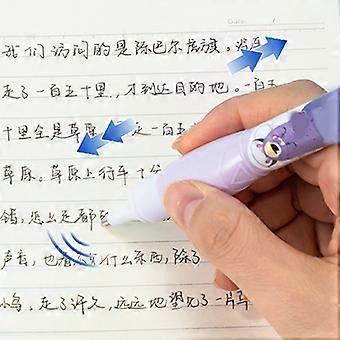 Date:
我们访问的是陈巴尔虎旗。汽车
走了一百五十里，才到达目的地。一百
十里全是草原 走一百五
草原。草原上行车十分
错，怎么走都
声音，也 什么东西，除了
小鸟。走了许久，远远地望见了一片草